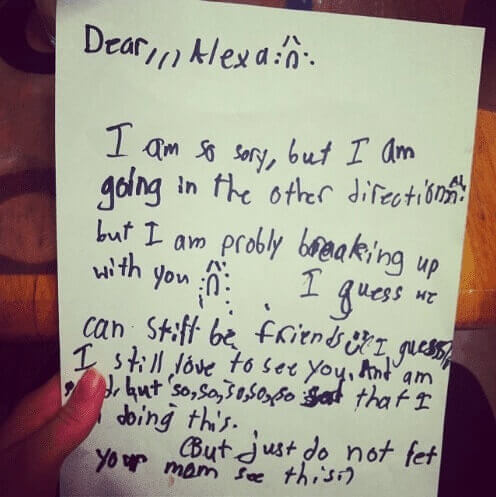 Dear,,,, Alexa
I am so sory, but I am
going in the other direction
but I am probly breaking up
with you I guess we
can still be friends I guess
I still love to see you. And am
but so, so, so, so, so sad that I
doing this.
(But just do not let
your mom see this:)